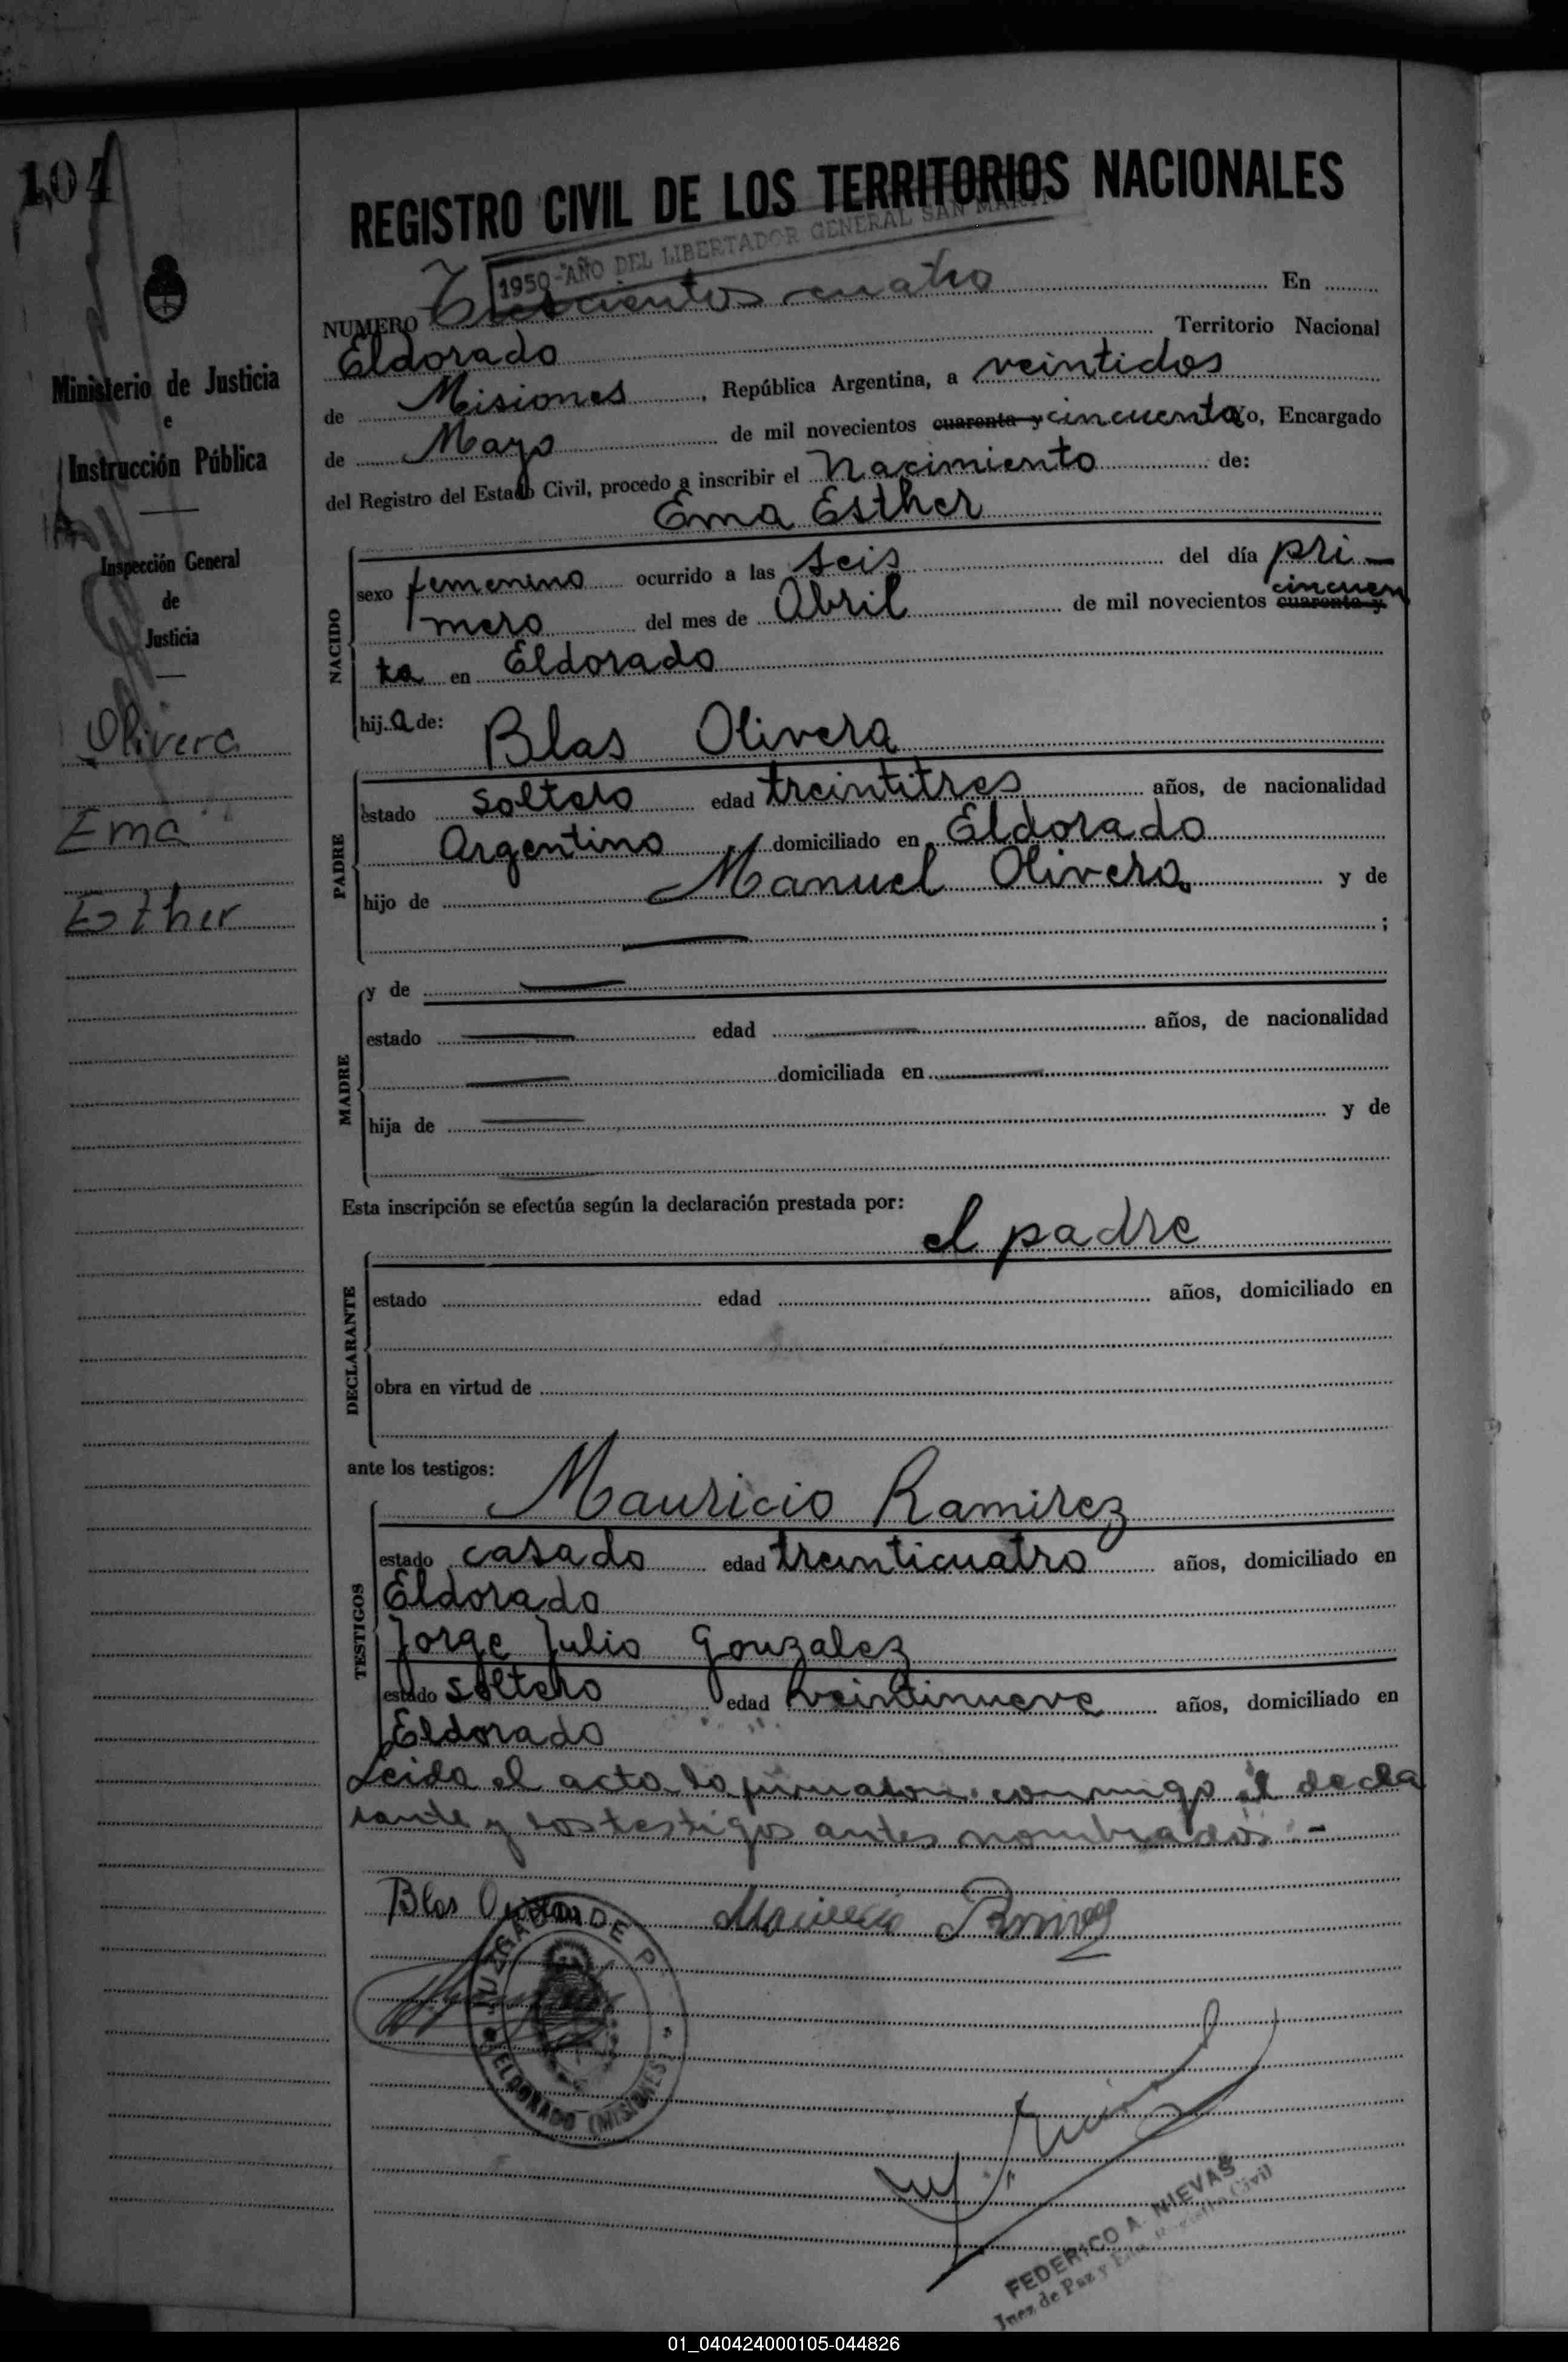 104
REGISTRO CIVIL DE LOS TERRITORIOS NACIONALES
1950-AÑO DEL LIBERTADOR GENERAL SAN MARTIN
NUMERO Trescientos cuatro En
Eldorado Territorio Nacional
de Misiones, República Argentina, a veintidos
de Mayo de mil novecientos cuarenta y cincuenta Yo, Encargado
del Registro del Estado Civil, procedo a inscribir el Nacimiento de:
Ema Esther
NACIDO
sexo femenino ocurrido a las seis del día pri-
mero del mes de Abril de mil novecientos cuarenta y cincuen
ta en Eldorado
hija de: Blas Olivera
PADRE
estado soltero edad treintitres años, de nacionalidad
Argentino domiciliado en Eldorado
hijo de Manuel Olivera y de
;
MADRE
y de
estado edad años, de nacionalidad
domiciliada en
hija de y de
Esta inscripción se efectúa según la declaración prestada por:
el padre
DECLARANTE
estado edad años, domiciliado en
obra en virtud de
ante los testigos:
Mauricio Ramirez
TESTIGOS
estado casado edad treinticuatro años, domiciliado en
Eldorado
Jorge Julio Gonzalez
estado soltero edad veintinueve años, domiciliado en
Eldorado
Leida el acta la firmaron conmigo el decla
rante y los testigos antes nombrados.-
Blas Mauricio Ramirez
JUZGADO DE P
ELDORADO (MISIONES)
FEDERICO A. NIEVAS
Juez de Paz y Enc. Registro Civil
Ministerio de Justicia
e
Instrucción Pública
Inspección General
de
Justicia
Olivera
Ema
Esther
01_040424000105-044826